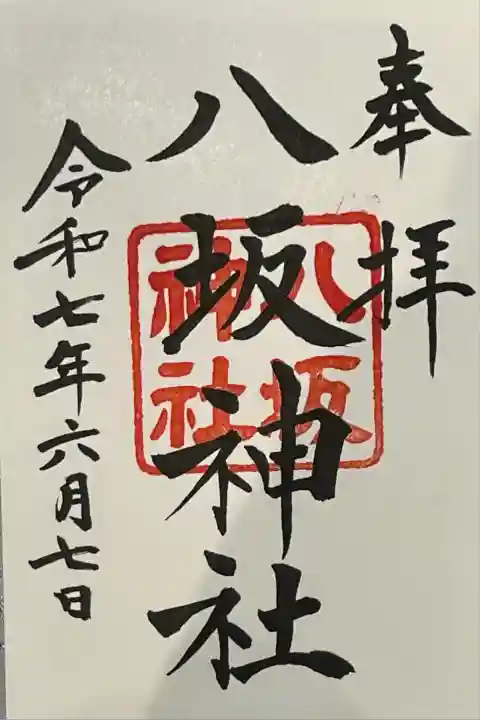 奉拝
八坂神社
八坂
神社
令和七年六月七日